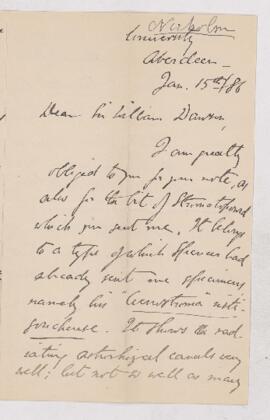 Nicholson
University
Aberdeen
Jan. 15th/86
Dear Sir William Dawson,
I am greatly
obliged to you for your note, as
also for the bit of Stromatoporoid
which you sent me. It belongs
to a type of which Spencer had
already sent me specimens
namely his
. It shows the rad-
iating astrorhizal canals very
well; but not so well as many